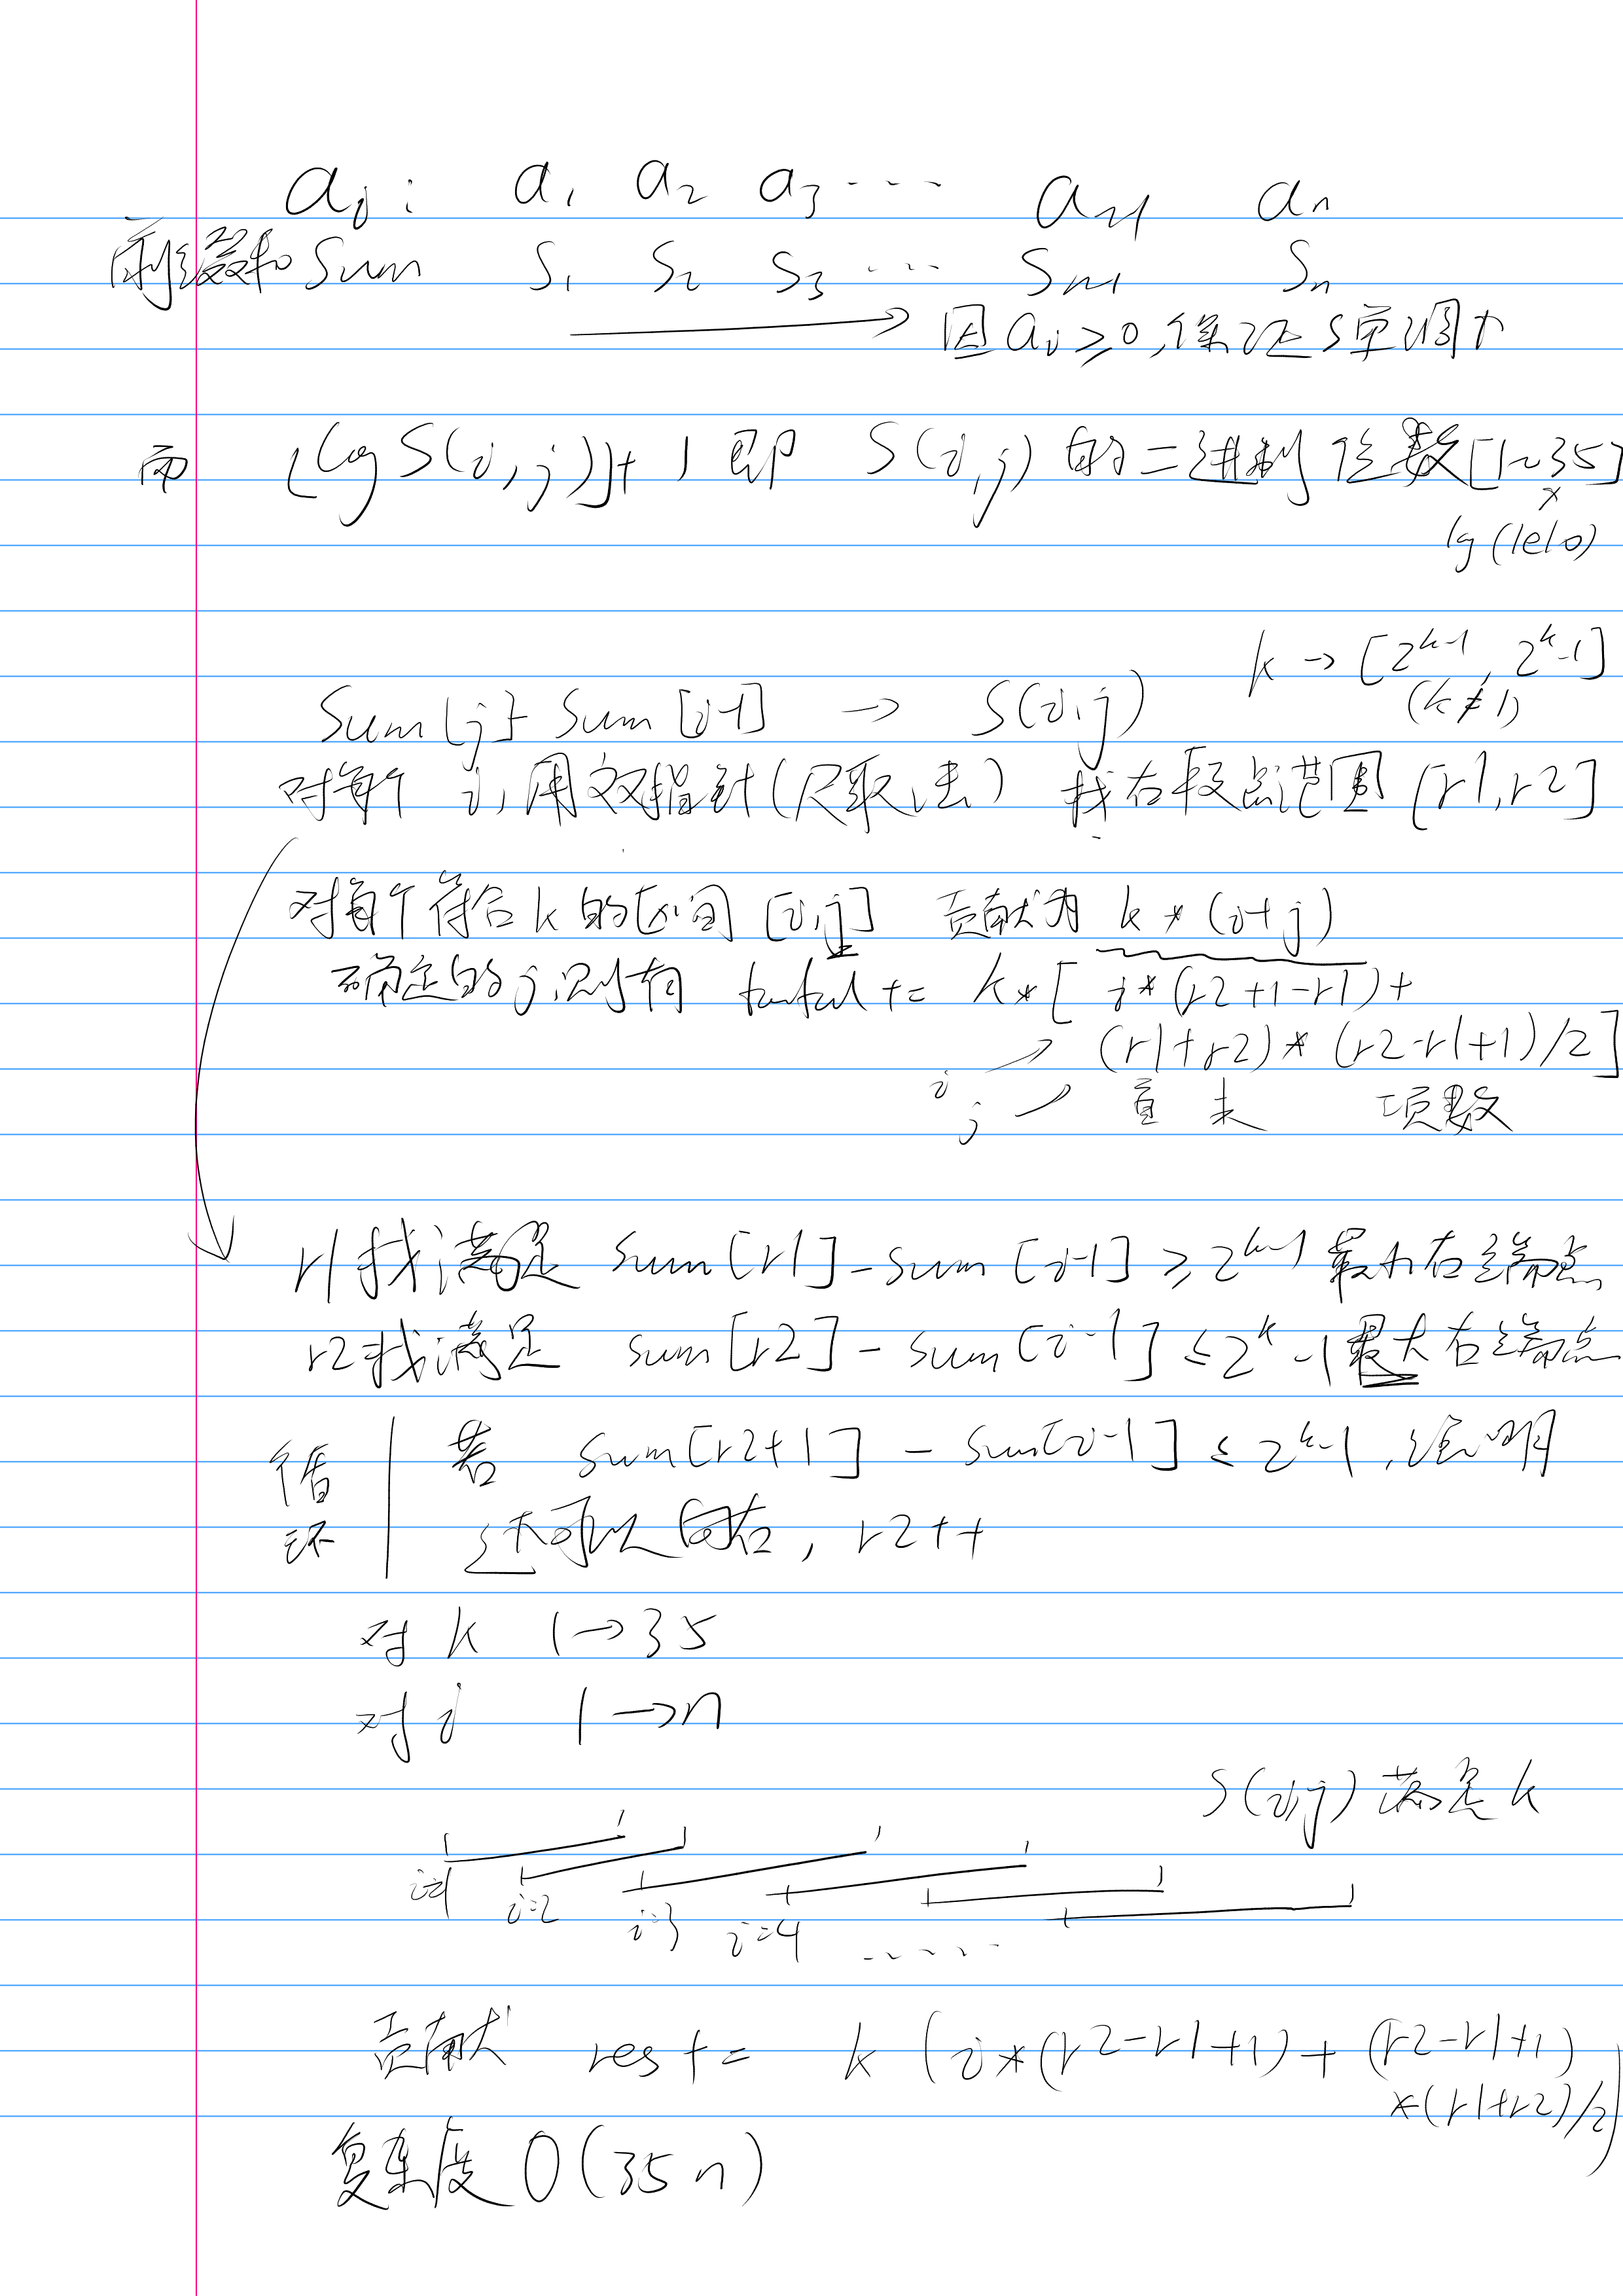 ai: a1 a2 a3 ··· an-1 an
前缀和 Sum S1 S2 S3 ··· Sn-1 Sn
→ 因ai≥0,保证S单调↑
而 ⌊log S(i,j)⌋+1 即 S(i,j) 的二进制位数[1~35]
lg(1e10)
k → [2^k-1, 2^k-1]
(k≠1)
Sum[j]-Sum[i-1] → S(i,j)
对每个 i,用双指针(尺取法) 找右段点范围 [r1,r2]
对每个符合k的区间[i,j] 贡献为 k*(i+j)
确定的i,则有 total += k*[ i*(r2+1-r1)+
(r1+r2)*(r2-r1+1)/2]
i
j 首 末 项数
r1找满足 sum[r1]-sum[i-1]≥2^k-1 最小右端点
r2找满足 sum[r2]-sum[i-1]≤2^k-1最大右端点
循环 若 sum[r2+1]-sum[i-1]≤2^k-1,说明
还可以向右,r2++
对 k 1→35
对 i 1→n
S(i,j)满足k
i=1 i=2 i=3 i=4 ······
贡献 res+= k(i*(r2-r1+1)+(r2-r1+1)
*(r1+r2)/2)
复杂度 O(35n)